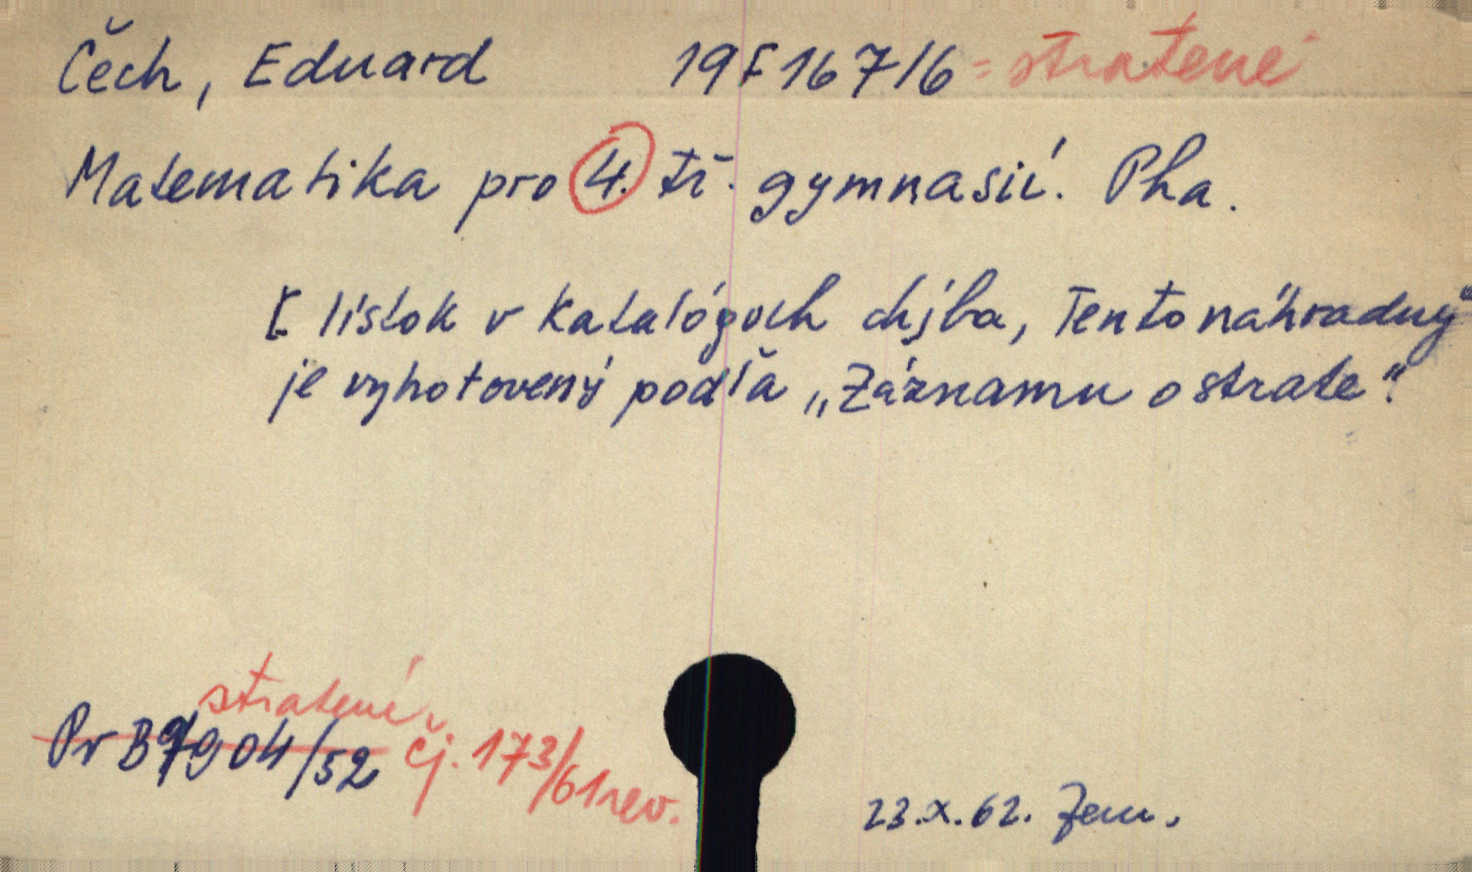 Čech, Eduard 19 F 167/6 = stratené
Matematika pro 4. tř. gymnasií. Pha.
[ lístok v katalógoch chýba, Tento náhradný
je vyhotovený podľa „Záznamu o strate".
stratené
Pr B 9904/52 čj. 173/61 rev.
23.X.62. Zem.